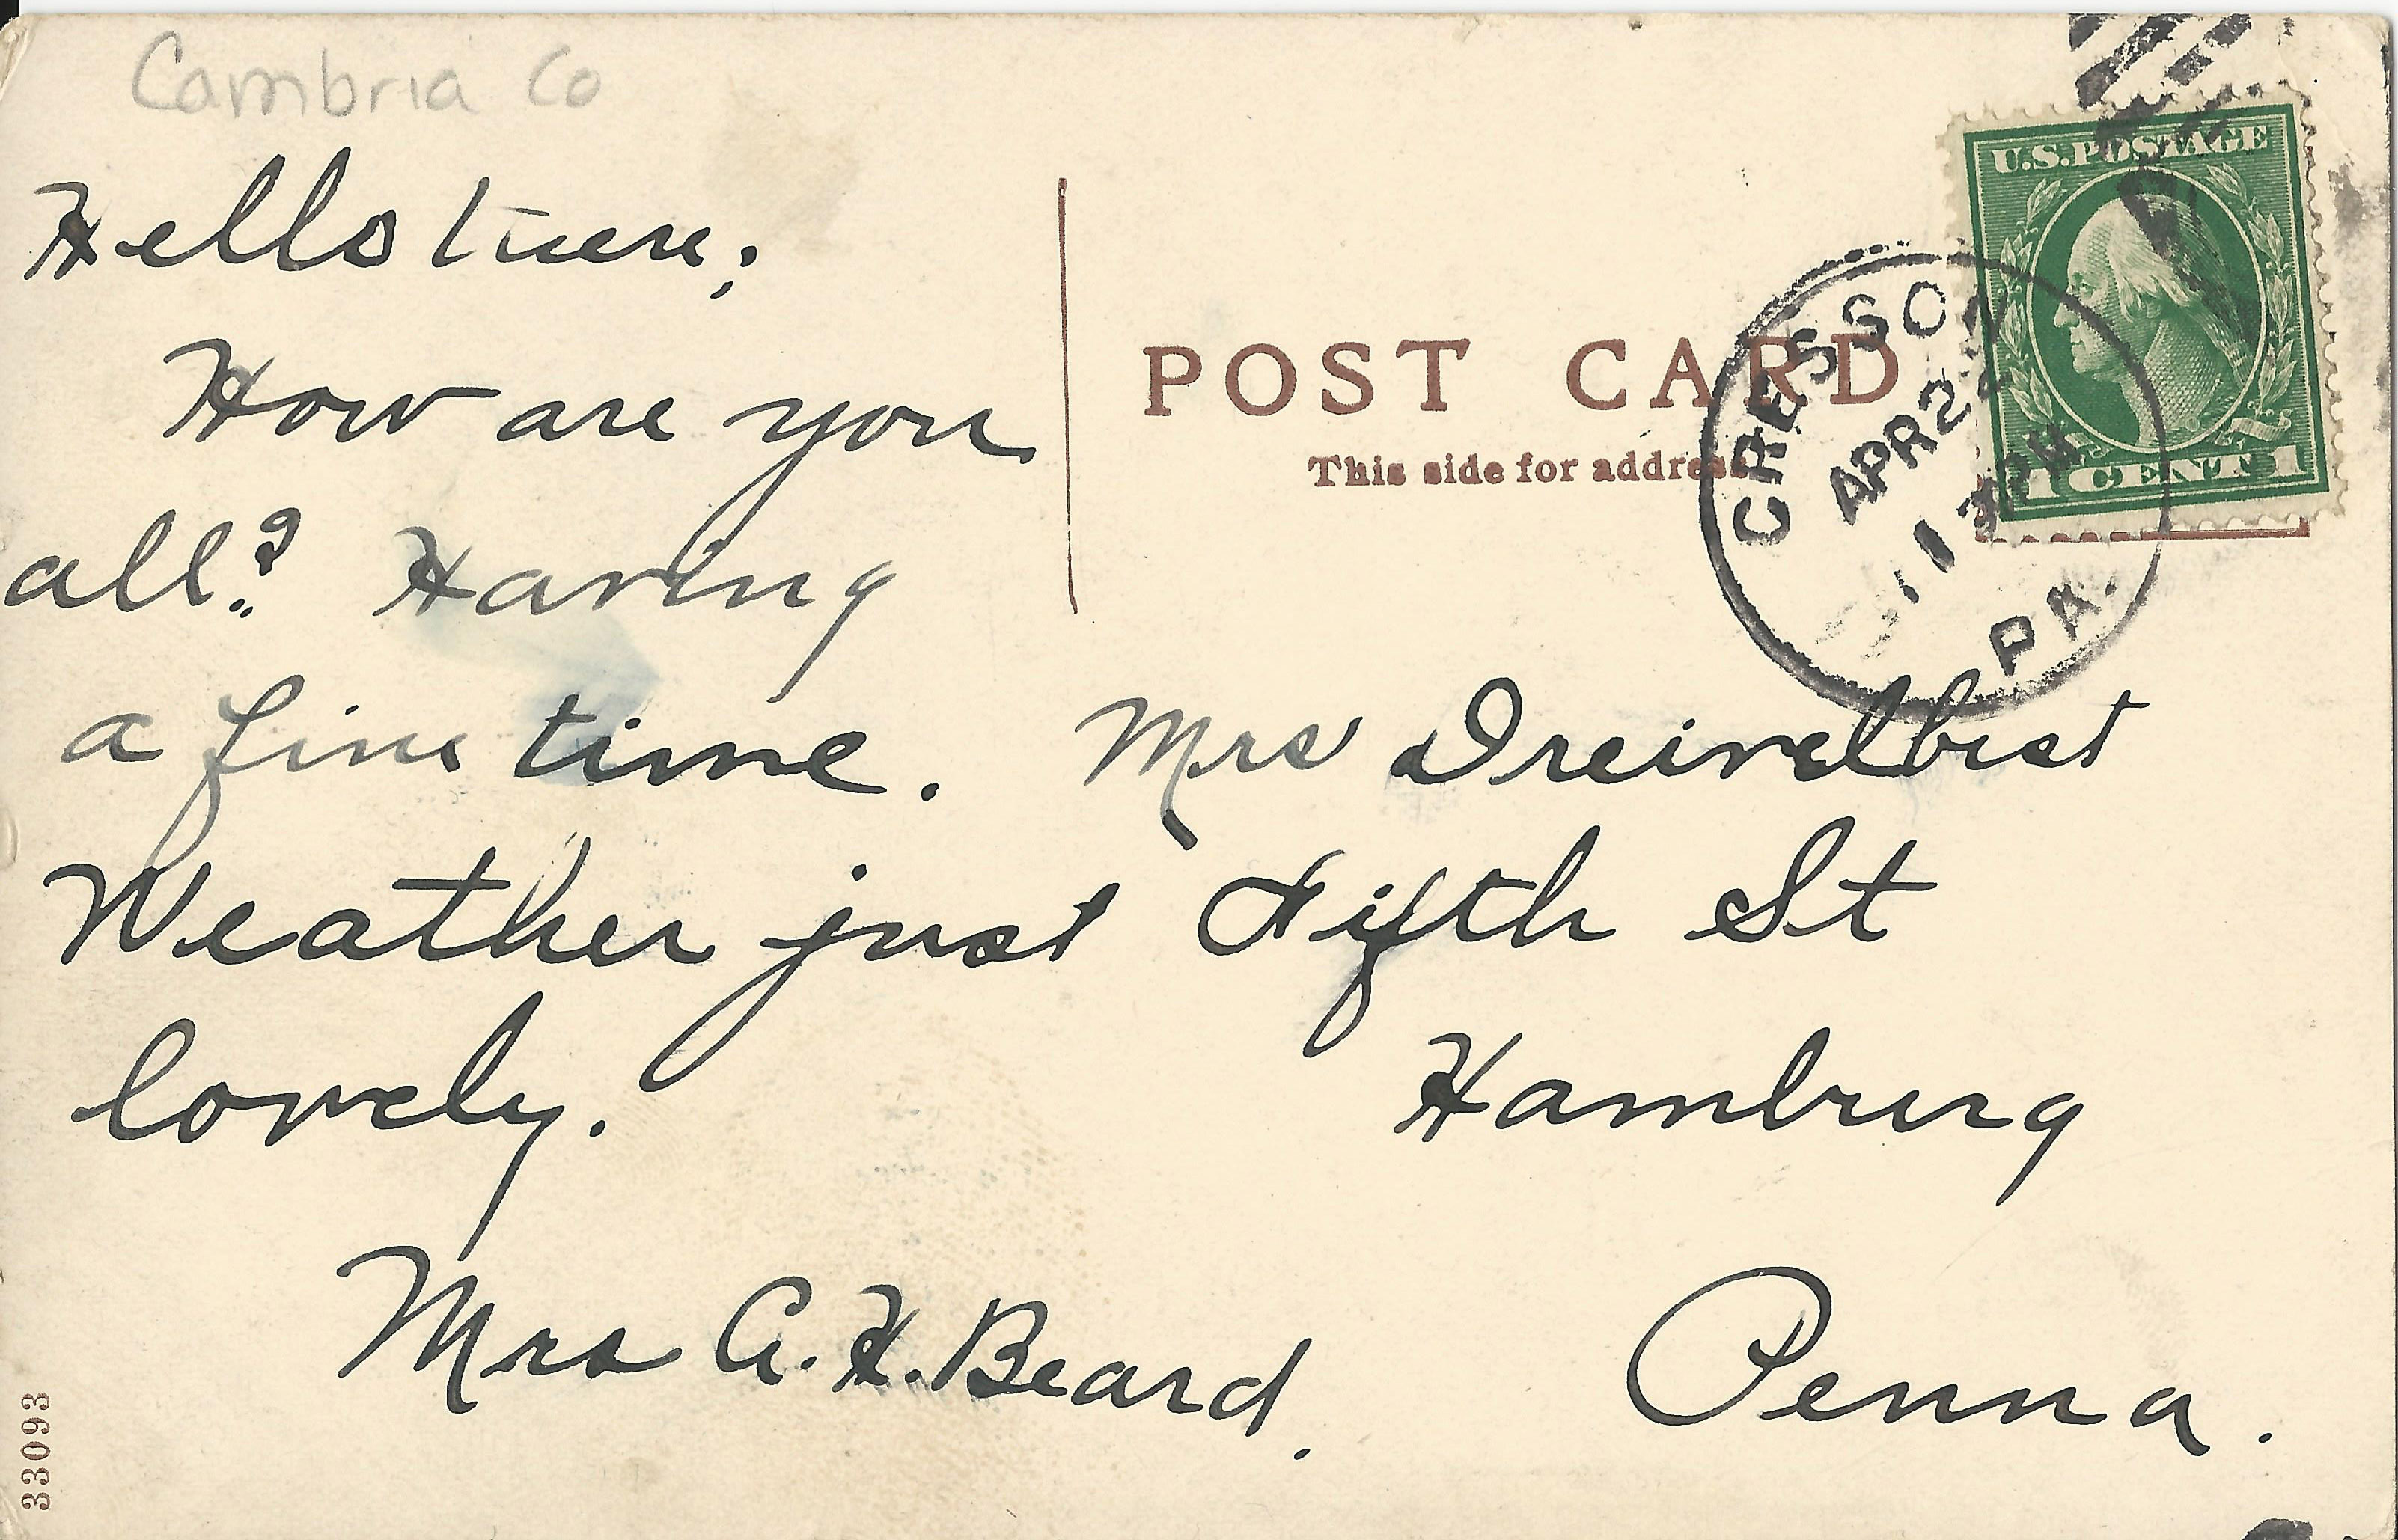 Cambria Co
Hello there;
How are you
all? Having
a fine time.
Weather just
lovely.
Mrs A. H. Beard.
33093
POST CARD
This side for address
U.S. POSTAGE
1 CENT 1
CRESSON
APR 2
PA.
Mrs Dreivelbist
Fifth St
Hamburg
Penna.